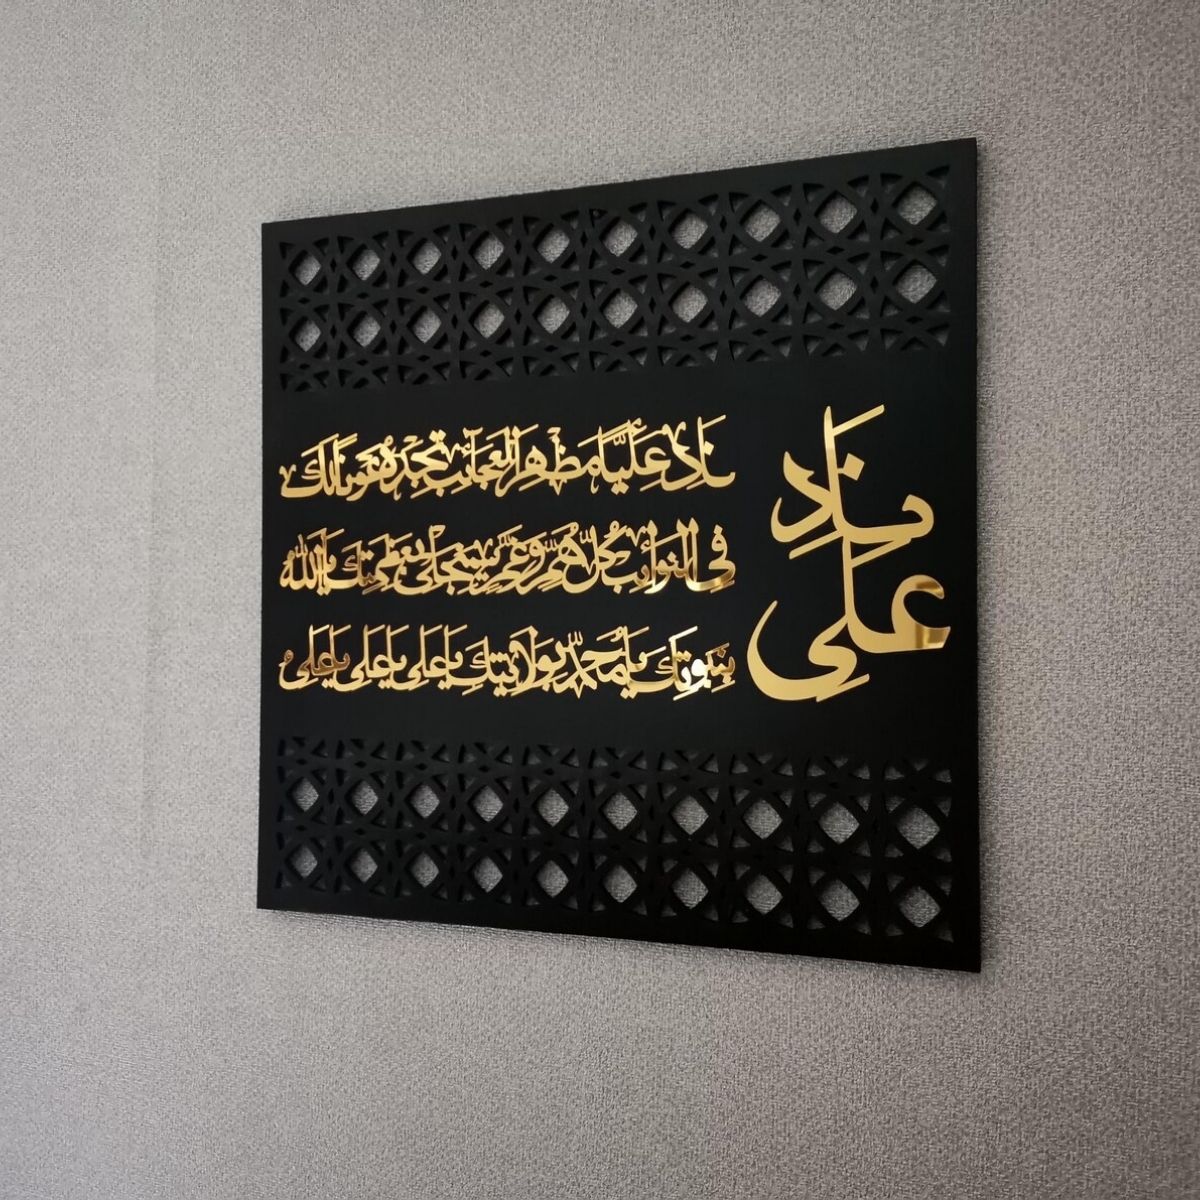 نادِ
علی
نادِ عَلیًّا مَظْهَرَ العَجائِب تَجِدْهُ عَوناً لَكَ
فِی النَّوائِب كُلِّ هَمٍّ وَغَمٍّ سَیَنْجَلی بِعَظَمَتِكَ یا اللهُ
بِنُبُوَتِكَ یا مُحَمَّد بِوَلایَتِكَ یا عَلی یا عَلی یا عَلیُ